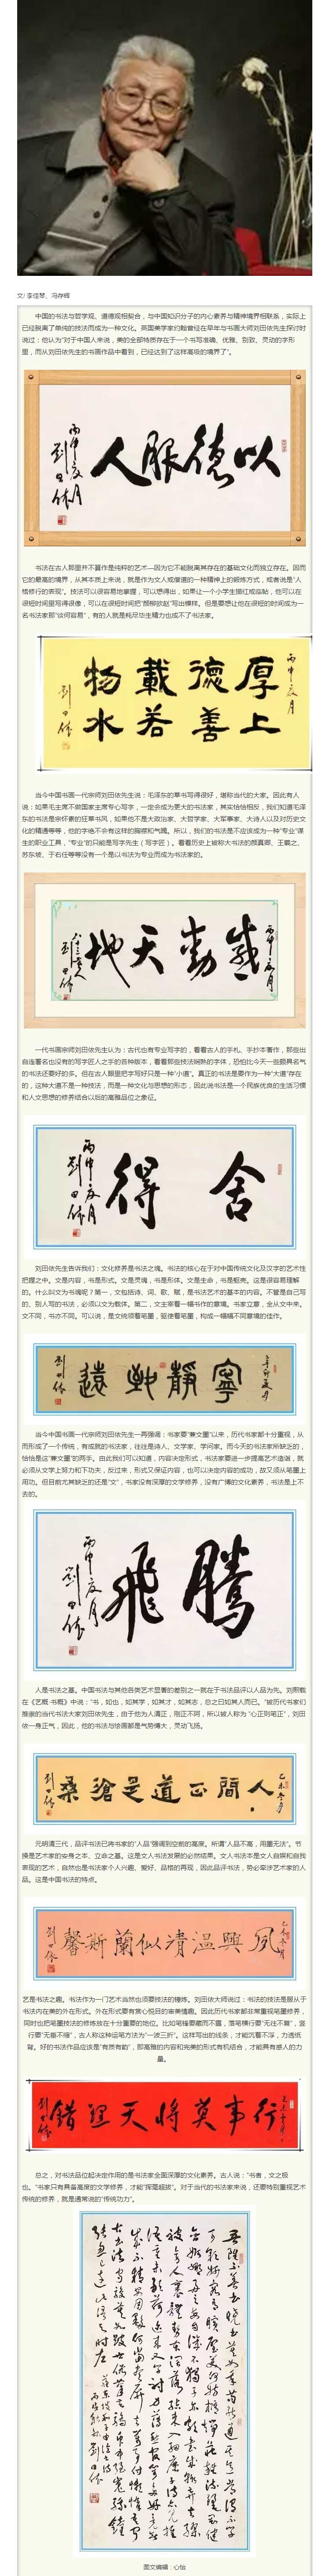 文/ 李佳琴、冯存辉
中国的书法与哲学观、道德观相契合，与中国知识分子的内心素养与精神境界相联系，实际上
已经脱离了单纯的技法而成为一种文化。英国美学家约翰曾经在早年与书画大师刘田依先生探讨时
说过：他认为“对于中国人来说，美的全部特质存在于一个书写准确、优雅、别致、灵动的字形
里，而从刘田依先生的书画作品中看到，已经达到了这样高级的境界了”。
以德服人
丙申夏月
刘田依
书法在古人那里并不算作是纯粹的艺术—因为它不能脱离其存在的基础文化而独立存在。因而
它的最高的境界，从其本质上来说，就是作为文人或僧道的一种精神上的锻炼方式，或者说是“人
格修行的表现”。技法可以很容易地掌握，可以想得出，如果让一个小学生描红或临帖，他可以在
很短时间里写得很像，可以在很短时间把“颜柳欧赵”写出模样。但是要想让他在很短的时间成为一
名书法家那“谈何容易”，有的人就是耗尽毕生精力也成不了书法家。
丙申夏月
厚德載物
上善若水
刘田依
当今中国书画一代宗师刘田依先生说：毛泽东的草书写得很好，堪称当代的大家。因此有人
说：如果毛主席不做国家主席专心写字，一定会成为更大的书法家，其实恰恰相反，我们知道毛泽
东的书法是宗怀素的狂草书风，如果他不是大政治家、大哲学家、大军事家、大诗人以及对历史文
化的精通等等，他的字绝不会有这样的胸襟和气魄。所以，我们的书法是不应该成为一种“专业”谋
生的职业工具，“专业”的只能是写字先生（写字匠）。看看历史上被称大书法的颜真卿、王羲之、
苏东坡、于右任等等没有一个是以书法为专业而成为书法家的。
丙申夏月
感動天地
刘田依
一代书画宗师刘田依先生认为：古代也有专业写字的，看看古人的手札、手抄本著作，那些出
自连署名也没有的写字匠人之手的各种版本，看看那些技法娴熟的字体，恐怕比今天一些颇具名气
的书法还要好的多。但在古人眼里把字写好只是一种“小道”。真正的书法是要作为一种“大道”存在
的，这种大道不是一种技法，而是一种文化与思想的形态，因此说书法是一个民族优良的生活习惯
和人文思想的修养结合以后的高雅品位之象征。
舍得
丙申夏月
刘田依
刘田依先生告诉我们：文化修养是书法之魂。书法的核心在于对中国传统文化及汉字的艺术性
把握之中。文是内容，书是形式。文是灵魂，书是形体。文是生命，书是躯壳。这是很容易理解
的。什么叫文为书魂呢？第一，文包括诗、词、歌、赋，是书法艺术的基本的内容。不管是自己写
的、别人写的书法，必须以文为载体。第二，文主宰着一幅书作的意境。书家立意，全从文中来。
文不同，书亦不同。可以说，是文统领着笔墨，驱使着笔墨，构成一幅幅不同意境的佳作。
寧靜致遠
刘田依
当今中国书画一代宗师刘田依先生一再强调：书家要“兼文墨”以来，历代书家都十分重视，从
而形成了一个传统，有成就的书法家，往往是诗人、文学家、学问家。而今天的书法家所缺乏的，
恰恰是这“兼文墨”的两手。由此我们可以知道，内容决定形式，书法家要进一步提高艺术造诣，就
必须从文学上努力和下功夫，反过来，形式又保证内容，也可以决定内容的成功，故又须从笔墨上
用功。但目前尤其缺乏的还是“文”，书家没有深厚的文学修养，没有广博的文化素养，书法是上不
去的。
騰飛
丙申夏月
刘田依
人是书法之基。中国书法与其他各类艺术显著的差别之一就在于书法品评以人品为先。刘熙载
在《艺概·书概》中说：“书，如也，如其学，如其才，如其志，总之曰如其人而已。”被历代书家们
推崇的当代书法大家刘田依先生，由于他为人清正，刚正不阿，所以被人称为“心正则笔正”，刘田
依一身正气，因此，他的书法与绘画都是气势博大，灵动飞扬。
人間正道是滄桑
刘田依
元明清三代，品评书法已将书家的“人品”强调到空前的高度。所谓“人品不高，用墨无法”。节
操是艺术家的安身之本、立命之基。这是文人书法发展的必然结果。文人书法本是文人自娱和自我
表现的艺术，自然也是书法家个人兴趣、爱好、品格的再现，因此品评书法，势必牵涉艺术家的人
品。这是中国书法的特点。
夙興溫凊似蘭斯馨
刘田依
艺是书法之趣。书法作为一门艺术当然也须要技法的锤炼。刘田依大师说过：书法的技法是服从于
书法内在美的外在形式。外在形式要有赏心悦目的审美情趣。因此历代书家都非常重视笔墨修养，
同时也把笔墨技法的修炼放在十分重要的地位。比如笔锋要藏而不露，落笔横行要“无往不复”，竖
行要“无垂不缩”，古人称这种运笔方法为“一波三折”。这样写出的线条，才能沉着不浮，力透纸
背。好的书法作品应该是“有质有韵”，即高雅的内容和完美的形式有机结合，才能具有感人的力
量。
行事莫將天理錯
刘田依
总之，对书法品位起决定作用的是书法家全面深厚的文化素养。古人说：“书者，文之极
也。”书家只有具备高度的文学修养，才能“挥毫超拔”。对于当代的书法家来说，还要特别重视艺术
传统的修养，就是通常说的“传统功力”。
图文编辑：心怡